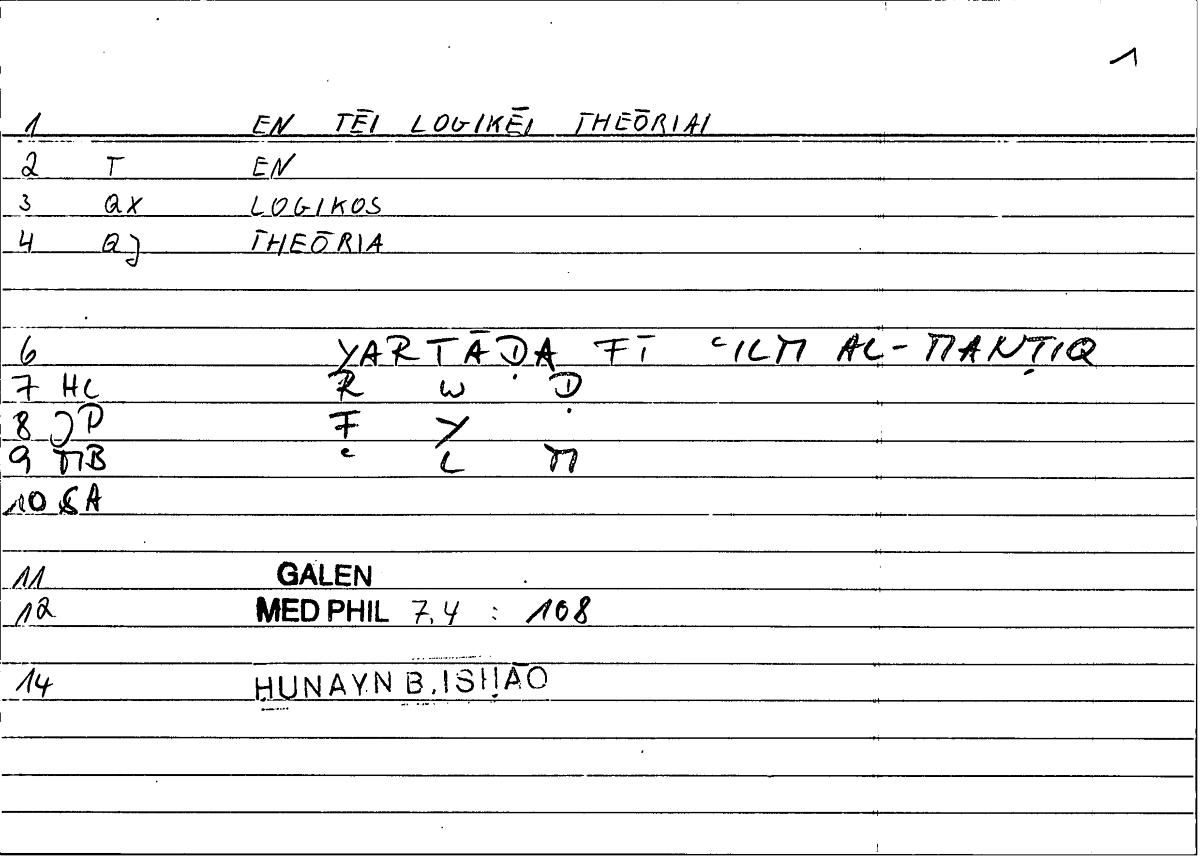 1
1 EN TĒI LOGIKĒI THEŌRIAI
2 T EN
3 QX LOGIKOS
4 QJ THEŌRIA
6 YARTĀḌA FĪ ʿILM AL-MANṬIQ
7 HL R W Ḍ
8 JP F Y
9 MB ʿ L M
10 &A
11 GALEN
12 MED PHIL 7.4 : 108
14 ḤUNAYN B. ISḤĀQ